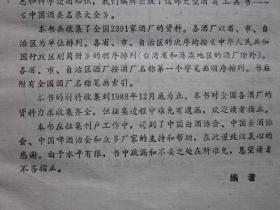 息和科学饮酒知识，我们编辑出版了这部大型酒类工具书——
《中国酒类名录大全》。
本书共收集了全国2391家酒厂的资料。各酒厂以省、市、自
治区为单位排列。各省、市、自治区的次序均按《中华人民共和
国行政区划简册》的顺序排列（台湾省和港澳地区的酒厂除外）。
各省、市、自治区酒厂按酒厂名称第一个字笔画顺序排列。书后
附有全国酒厂名称笔画索引。
本书的材料收集到1988年12月底为止。本书对全国各酒厂的
资料力求收集齐全，但征集过程中难免有遗漏，欢迎读者指正。
本书在征集刊户工作中，得到了中国白酒协会、中国黄酒协
会、中国啤酒协会和众多厂家的支持和帮助，在此谨致以衷心的
感谢。由于水平有限，书中疏漏和不妥之处在所难免，恳望读者
不吝指正。
编者